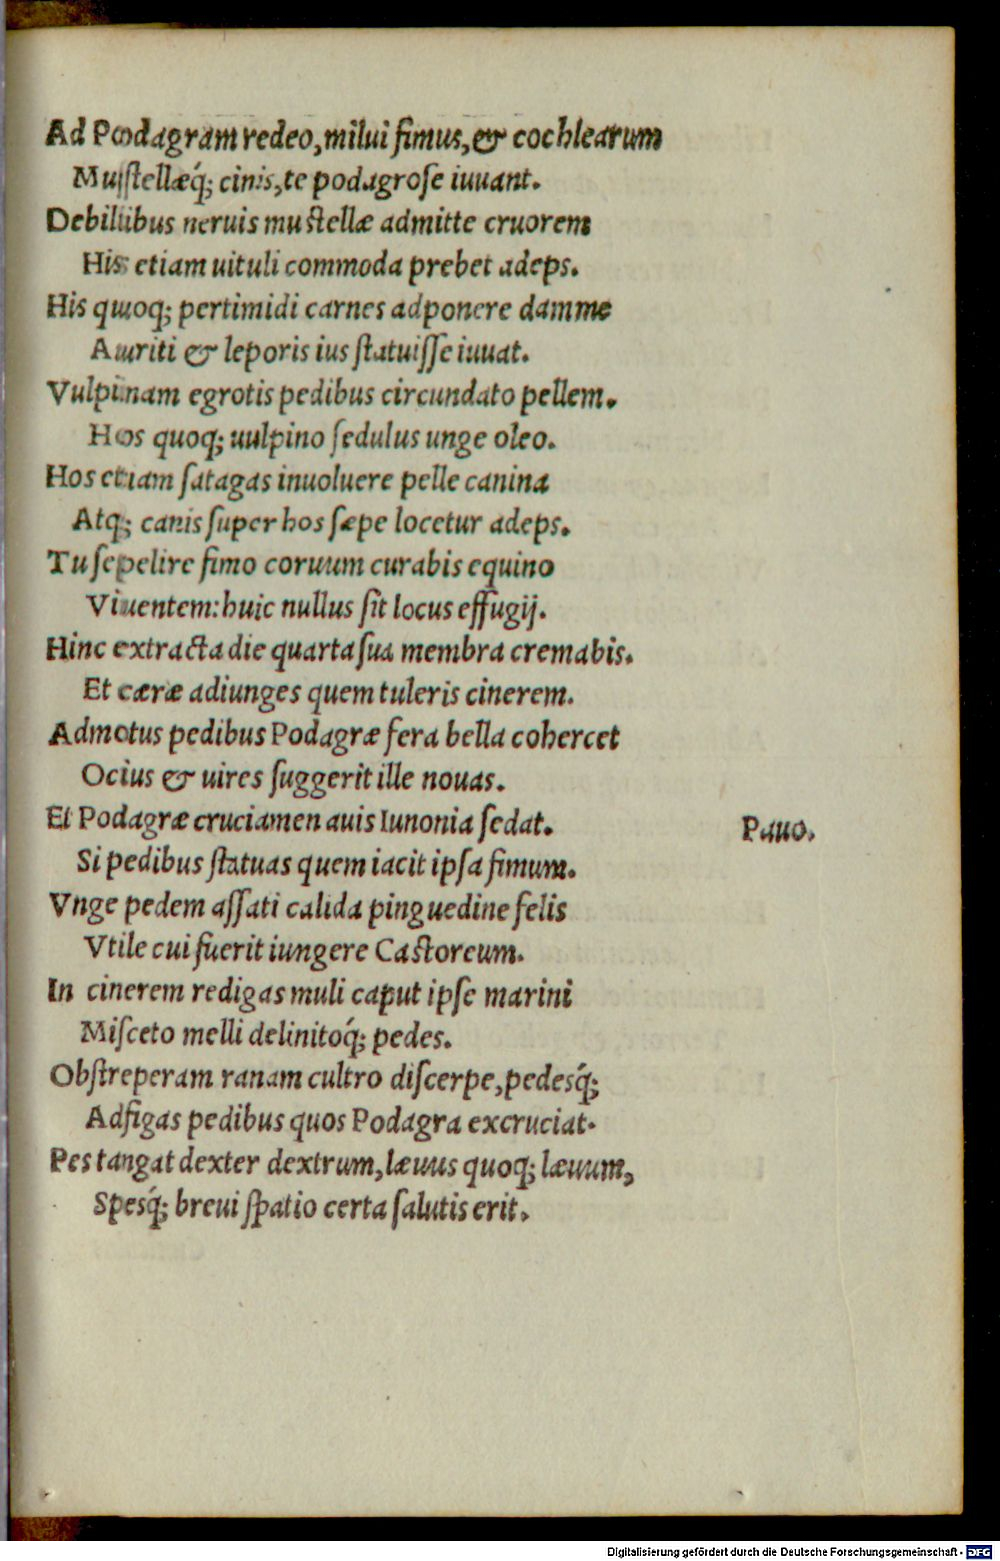 Ad Podagram redeo, milui fimus, & cochlearum
Muſtellæq́; cinis, te podagroſe iuuant.
Debilibus neruis muſtellæ admitte cruorem
His etiam uituli commoda prebet adeps.
His quoq; pertimidi carnes adponere damme
Auriti & leporis ius ſtatuiſſe iuuat.
Vulpinam egrotis pedibus circundato pellem.
Hos quoq; uulpino ſedulus unge oleo.
Hos etiam ſatagas inuoluere pelle canina
Atq; canis ſuper hos ſæpe locetur adeps.
Tu ſepelire fimo coruum curabis equino
Viuentem: huic nullus ſit locus effugij.
Hinc extracta die quarta ſua membra cremabis.
Et cæræ adiunges quem tuleris cinerem.
Admotus pedibus Podagræ fera bella cohercet
Ocius & uires ſuggerit ille nouas.
Et Podagræ cruciamen auis Iunonia ſedat.
Pauo.
Si pedibus ſtatuas quem iacit ipſa fimum.
Vnge pedem aſſati calida pinguedine felis
Vtile cui fuerit iungere Caſtoreum.
In cinerem redigas muli caput ipſe marini
Miſceto melli delinitoq́; pedes.
Obſtreperam ranam cultro diſcerpe, pedesq́;
Adfigas pedibus quos Podagra excruciat.
Pes tangat dexter dextrum, læuus quoq; læuum,
Spesq́; breui ſpatio certa ſalutis erit.
Digitalisierung gefördert durch die Deutsche Forschungsgemeinschaft - DFG